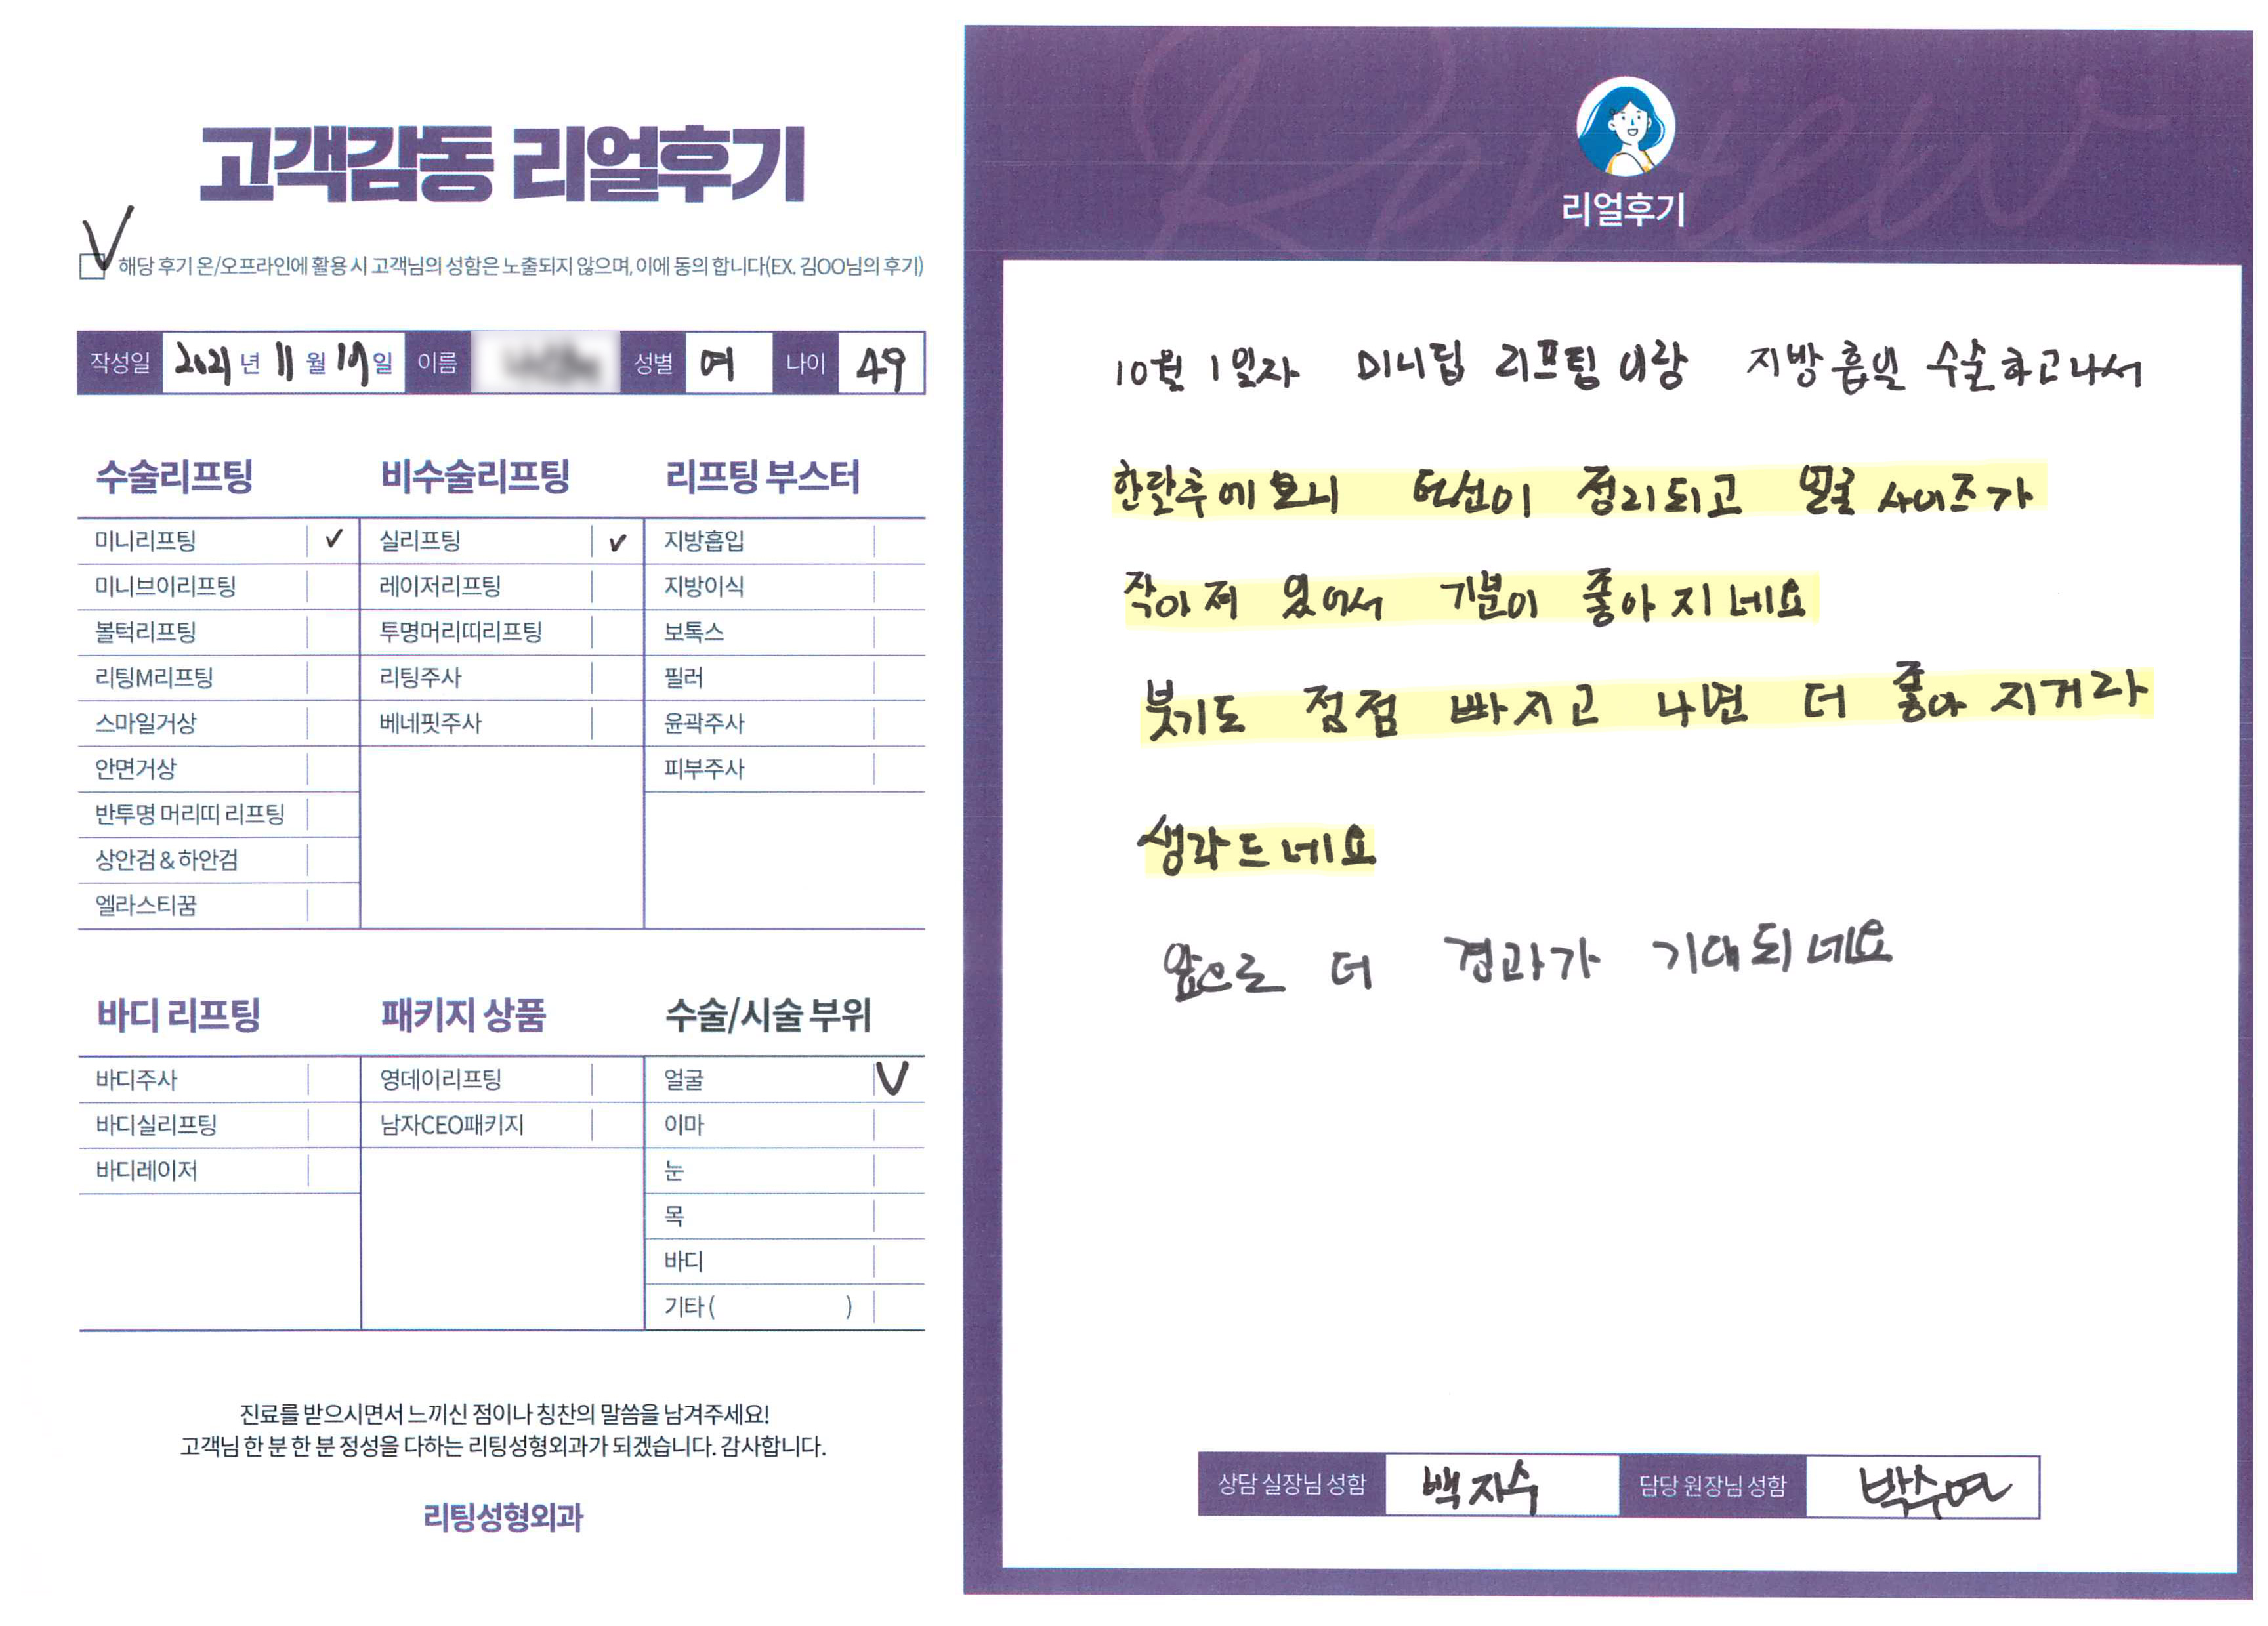 고객감동 리얼후기
해당 후기 온/오프라인에 활용 시 고객님의 성함은 노출되지 않으며, 이에 동의 합니다(EX. 김OO님의 후기)
작성일 2021년 11월 19일 이름 성별 여 나이 49
수술리프팅
미니리프팅 ✓
미니브이리프팅
볼턱리프팅
리팅M리프팅
스마일거상
안면거상
반투명 머리띠 리프팅
상안검 & 하안검
엘라스티꿈
비수술리프팅
실리프팅 ✓
레이저리프팅
투명머리띠리프팅
리팅주사
베네핏주사
리프팅 부스터
지방흡입
지방이식
보톡스
필러
윤곽주사
피부주사
바디 리프팅
바디주사
바디실리프팅
바디레이저
패키지 상품
영데이리프팅
남자CEO패키지
수술/시술 부위
얼굴 V
이마
눈
목
바디
기타 ( )
진료를 받으시면서 느끼신 점이나 칭찬의 말씀을 남겨주세요!
고객님 한 분 한 분 정성을 다하는 리팅성형외과가 되겠습니다. 감사합니다.
리팅성형외과
Review
리얼후기
10월 1일자 미니딥 리프팅이랑 지방흡입 수술하고나서
한달후에 보니 턱선이 정리되고 얼굴 사이즈가
작아져 있어서 기분이 좋아지네요
붓기도 점점 빠지고 나면 더 좋아지거라
생각드네요
앞으로 더 경과가 기대되네요
상담 실장님 성함 백지수 담당 원장님 성함 박수연